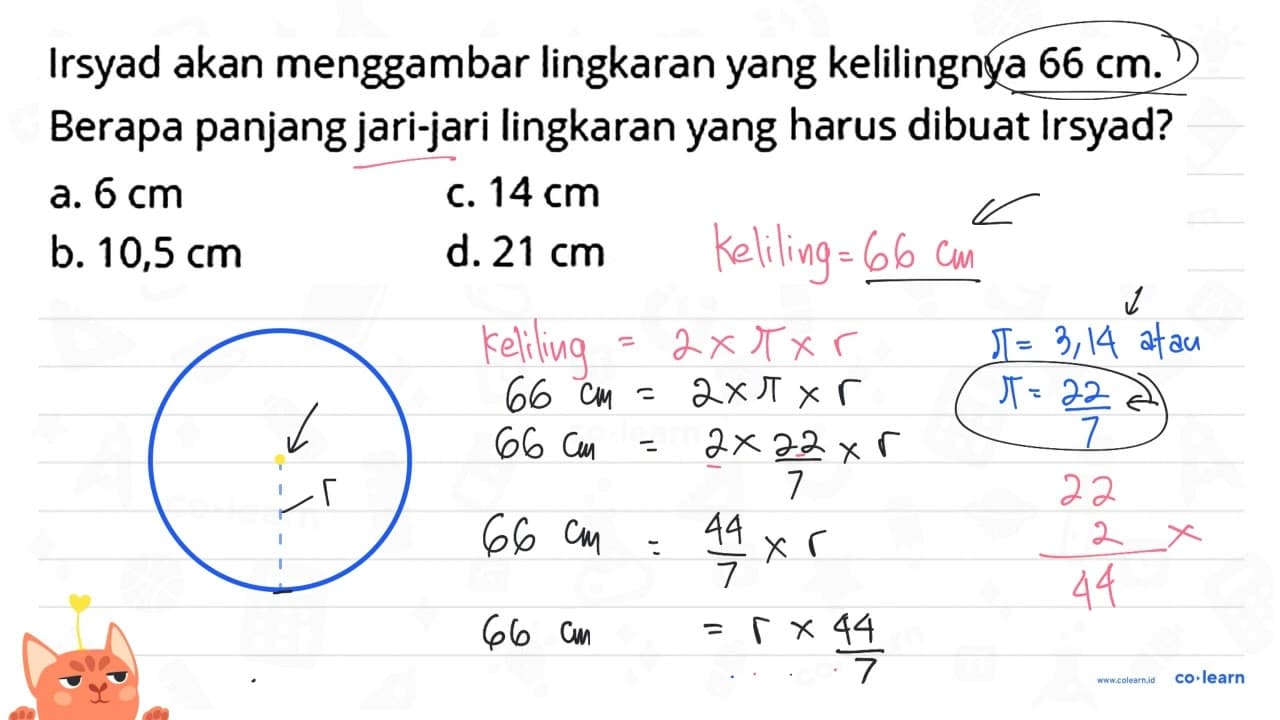 Irsyad akan menggambar lingkaran yang kelilingnya 66 cm.
Berapa panjang jari-jari lingkaran yang harus dibuat Irsyad?
a. 6 cm
c. 14 cm
b. 10,5 cm
d. 21 cm
Keliling = 66 cm
Keliling = 2 × π × r
π = 3,14 atau
66 cm = 2 × π × r
π = 22/7
66 cm = 2 × 22/7 × r
r
22
2 ×
44
66 cm = 44/7 × r
66 cm = r × 44/7
www.colearn.id
co·learn